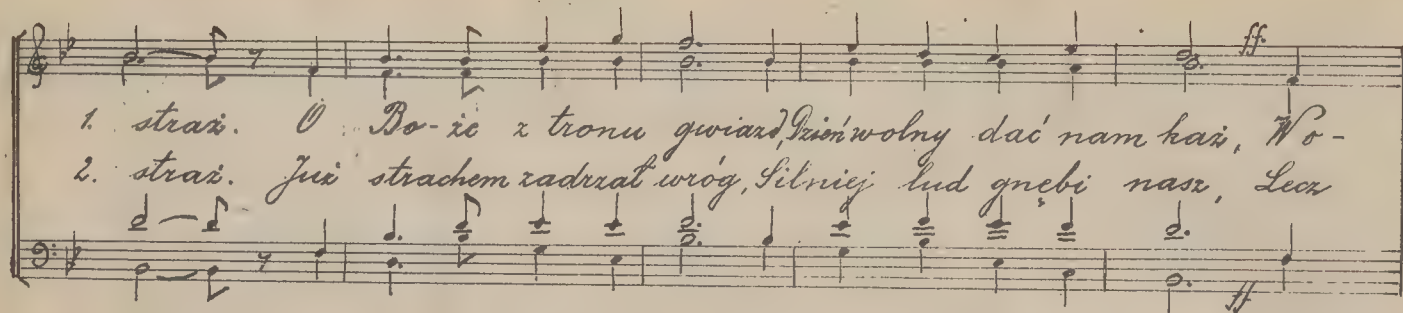 ff
1. straż. O Bo-że z tronu gwiazd, Dzień wolny dać nam każ, Wo-
2. straż. Już strachem zadrżał wróg, Silniej lud gnębi nasz, Lecz
ff